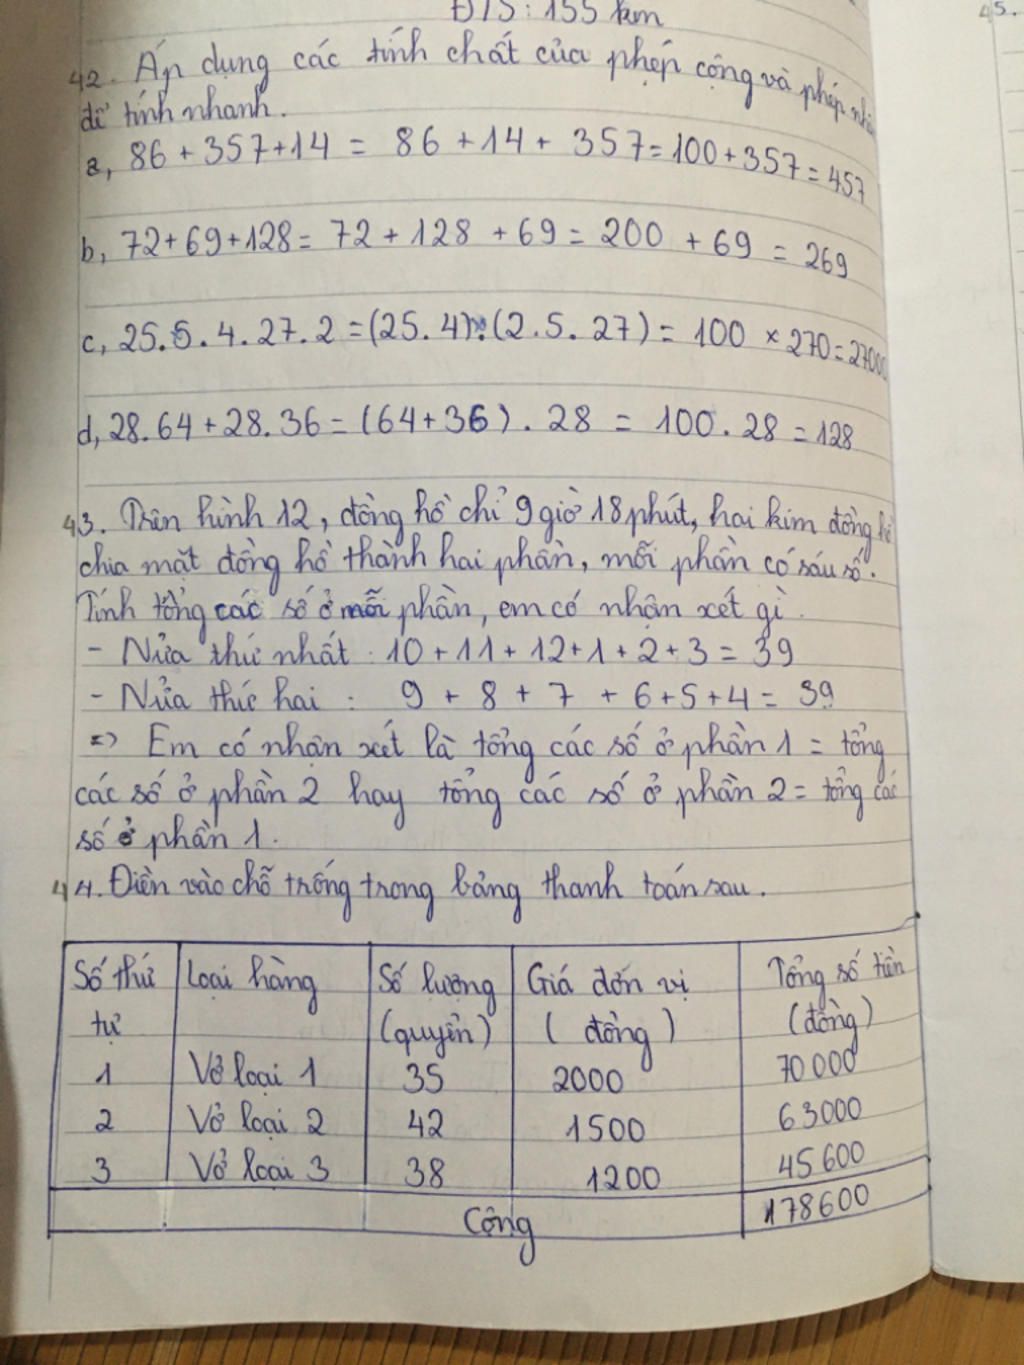 ĐTS: 155 km
45.
42. Áp dụng các tính chất của phép cộng và phép
để tính nhanh.
a, 86 + 357 + 14 = 86 + 14 + 357 = 100 + 357 = 457
b, 72 + 69 + 128 = 72 + 128 + 69 = 200 + 69 = 269
c, 25. 5. 4. 27. 2 = (25. 4).(2. 5. 27) = 100 × 270 = 27000
d, 28. 64 + 28. 36 = (64 + 36). 28 = 100. 28 = 128
43. Trên hình 12, đồng hồ chỉ 9 giờ 18 phút, hai kim đồng hồ
chia mặt đồng hồ thành hai phần, mỗi phần có sáu số.
Tính tổng các số ở mỗi phần, em có nhận xét gì.
- Nửa thứ nhất: 10 + 11 + 12 + 1 + 2 + 3 = 39
- Nửa thứ hai: 9 + 8 + 7 + 6 + 5 + 4 = 39
=> Em có nhận xét là tổng các số ở phần 1 = tổng
các số ở phần 2 hay tổng các số ở phần 2 = tổng các
số ở phần 1.
44. Điền vào chỗ trống trong bảng thanh toán sau.
Số thứ tự Loại hàng Số lượng (quyển) Giá đơn vị (đồng) Tổng số tiền (đồng)
1 Vở loại 1 35 2000 70000
2 Vở loại 2 42 1500 63000
3 Vở loại 3 38 1200 45600
Cộng 178600